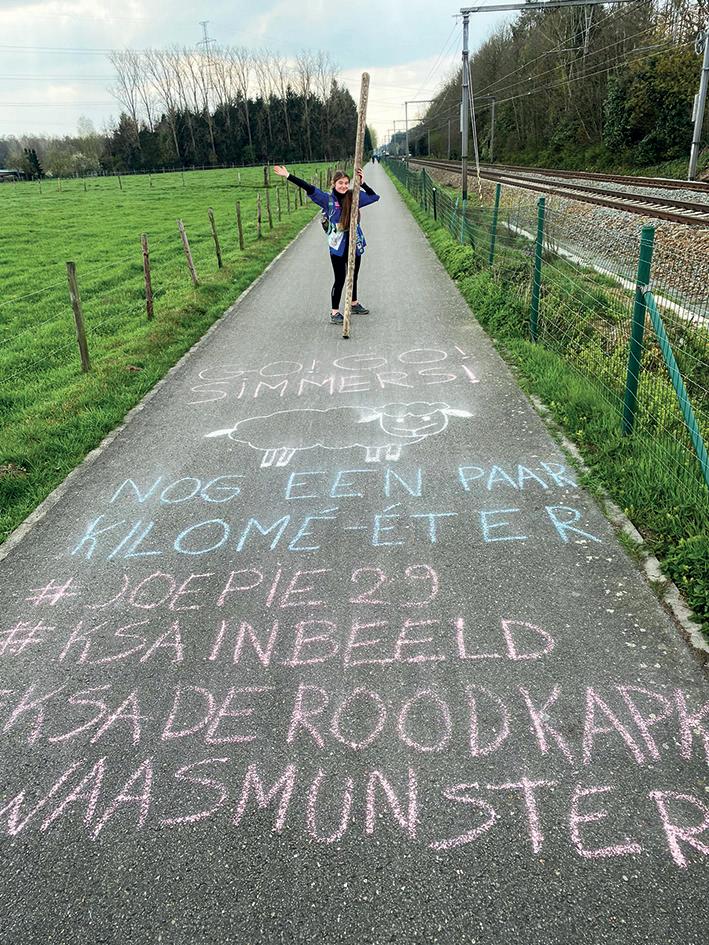 GO! GO! GO!
SIMMERS!
NOG EEN PAAR
KILOMÉ-ÉTER
#JOEPIE29
#KSAINBEELD
#KSADEROODKAPK
WAASMUNSTER